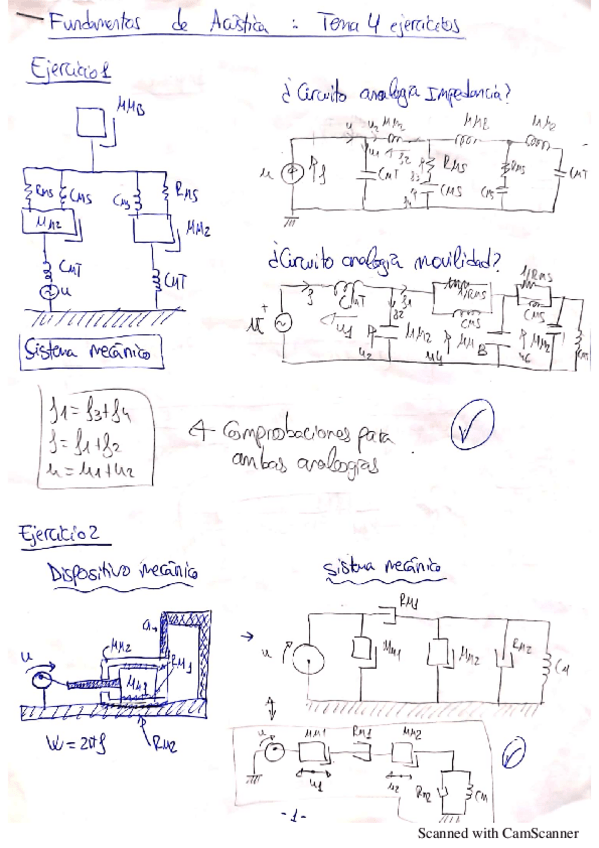 Fundamentos de Acústica : Tema 4 ejercicios
Ejercicio 1
¿Circuito analogía Impedancia?
MMB
RMS CMS CMS RMS
MM2 MM2
CMT CMT
u
Sistema mecánico
u u2 MM2 MMB MM2
u f CMT RMS CMS RMS CMS CMT
¿Circuito analogía movilidad?
CMT 1/RMS CMS 1/RMS CMS
u1 u2 MM2 MMB MM2
f1 = f3+f4
f = f1+f2
u = u1+u2
Comprobaciones para
ambas analogías
Ejercicio 2
Dispositivo mecánico
Sistema mecánico
u MM2 RM1 MM1
W = 2πf RM2
RM1
u MM1 MM2 RM2 CM
u MM1 RM1 MM2
u1 u2 RM2 CM
-1-
Scanned with CamScanner